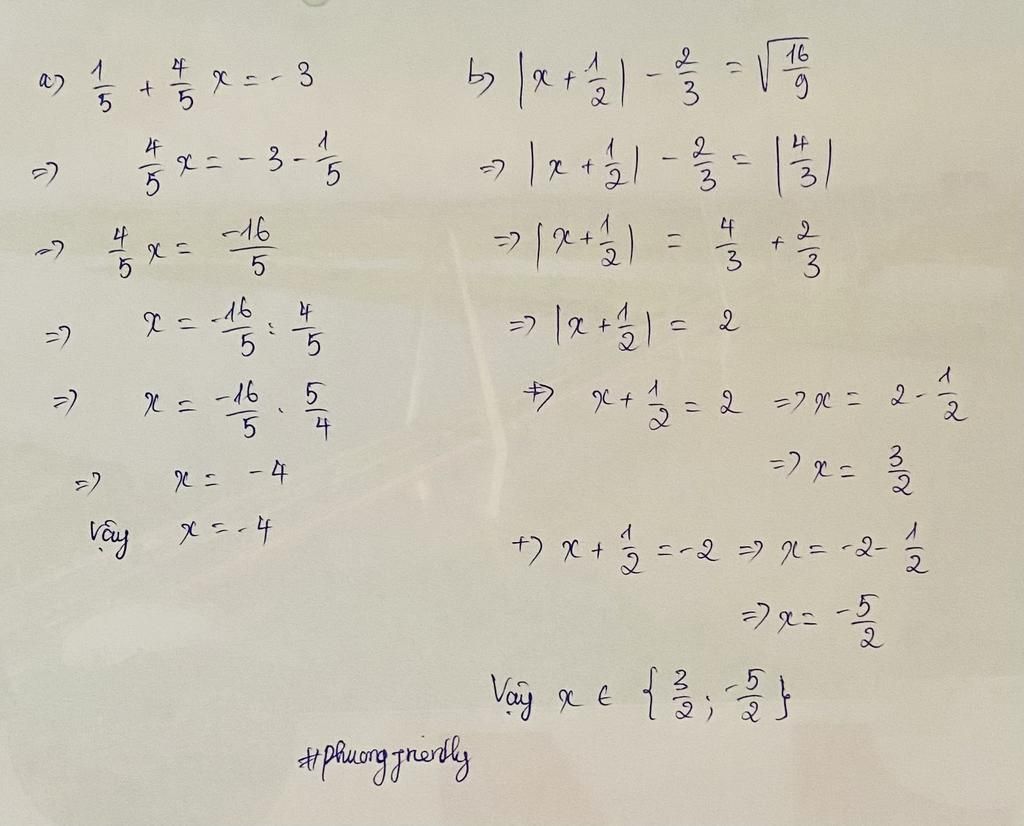 a) 1/5 + 4/5 x = - 3
=> 4/5 x = - 3 - 1/5
=> 4/5 x = -16/5
=> x = -16/5 : 4/5
=> x = -16/5 . 5/4
=> x = -4
Vậy x = -4
b) |x + 1/2| - 2/3 = √(16/9)
=> |x + 1/2| - 2/3 = |4/3|
=> |x + 1/2| = 4/3 + 2/3
=> |x + 1/2| = 2
+) x + 1/2 = 2 => x = 2 - 1/2
=> x = 3/2
+) x + 1/2 = -2 => x = -2 - 1/2
=> x = -5/2
Vậy x ∈ {3/2 ; -5/2}
#phuongfriendly